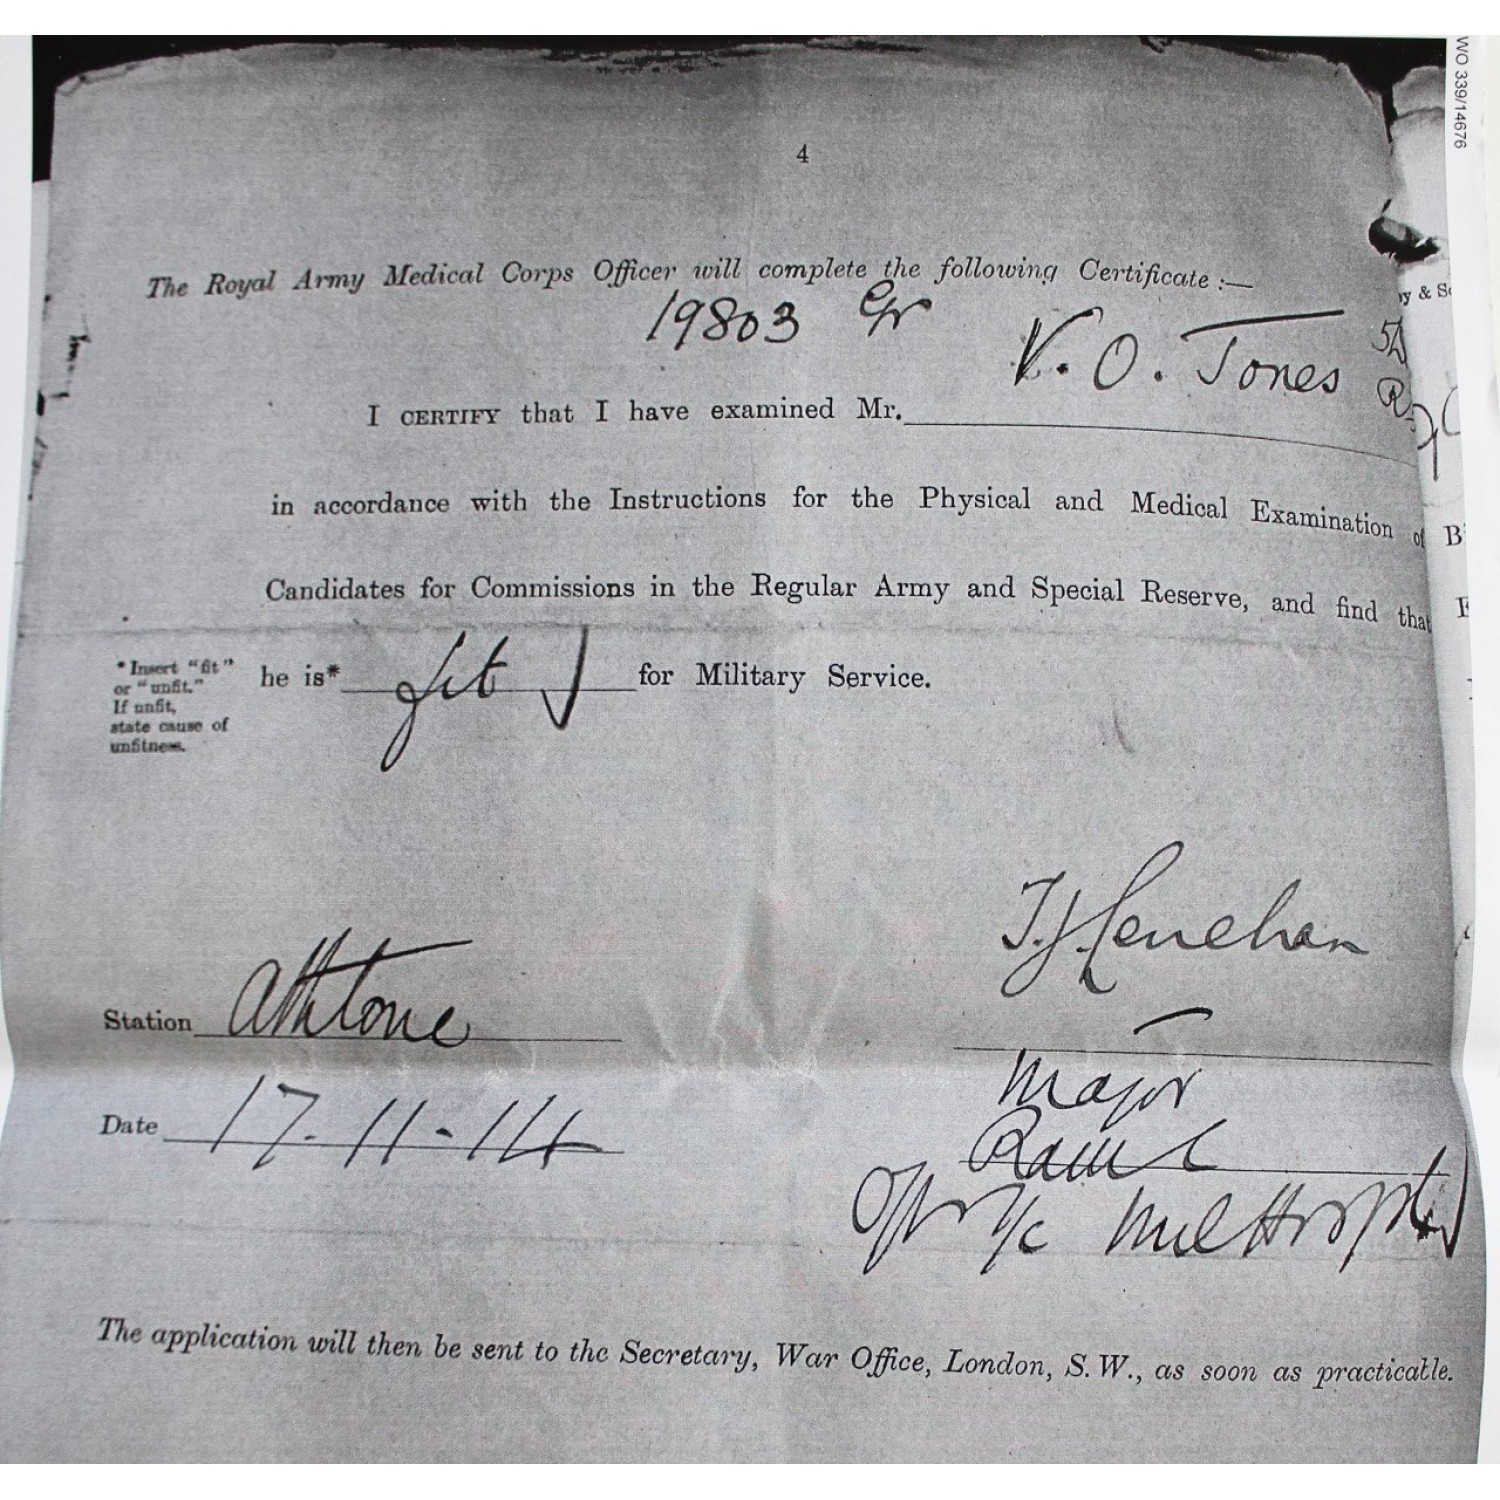 WO 339/14676
4
The Royal Army Medical Corps Officer will complete the following Certificate :—
19803 Gr V. O. Jones
I CERTIFY that I have examined Mr.
in accordance with the Instructions for the Physical and Medical Examination of
Candidates for Commissions in the Regular Army and Special Reserve, and find that
he is* fit for Military Service.
* Insert "fit"
or "unfit."
If unfit,
state cause of
unfitness.
T. J. Lenehan
Station Athlone
Major
Date 17-11-14
RAMC
Offr I/c Mil Hospital
The application will then be sent to the Secretary, War Office, London, S.W., as soon as practicable.
y & S
B